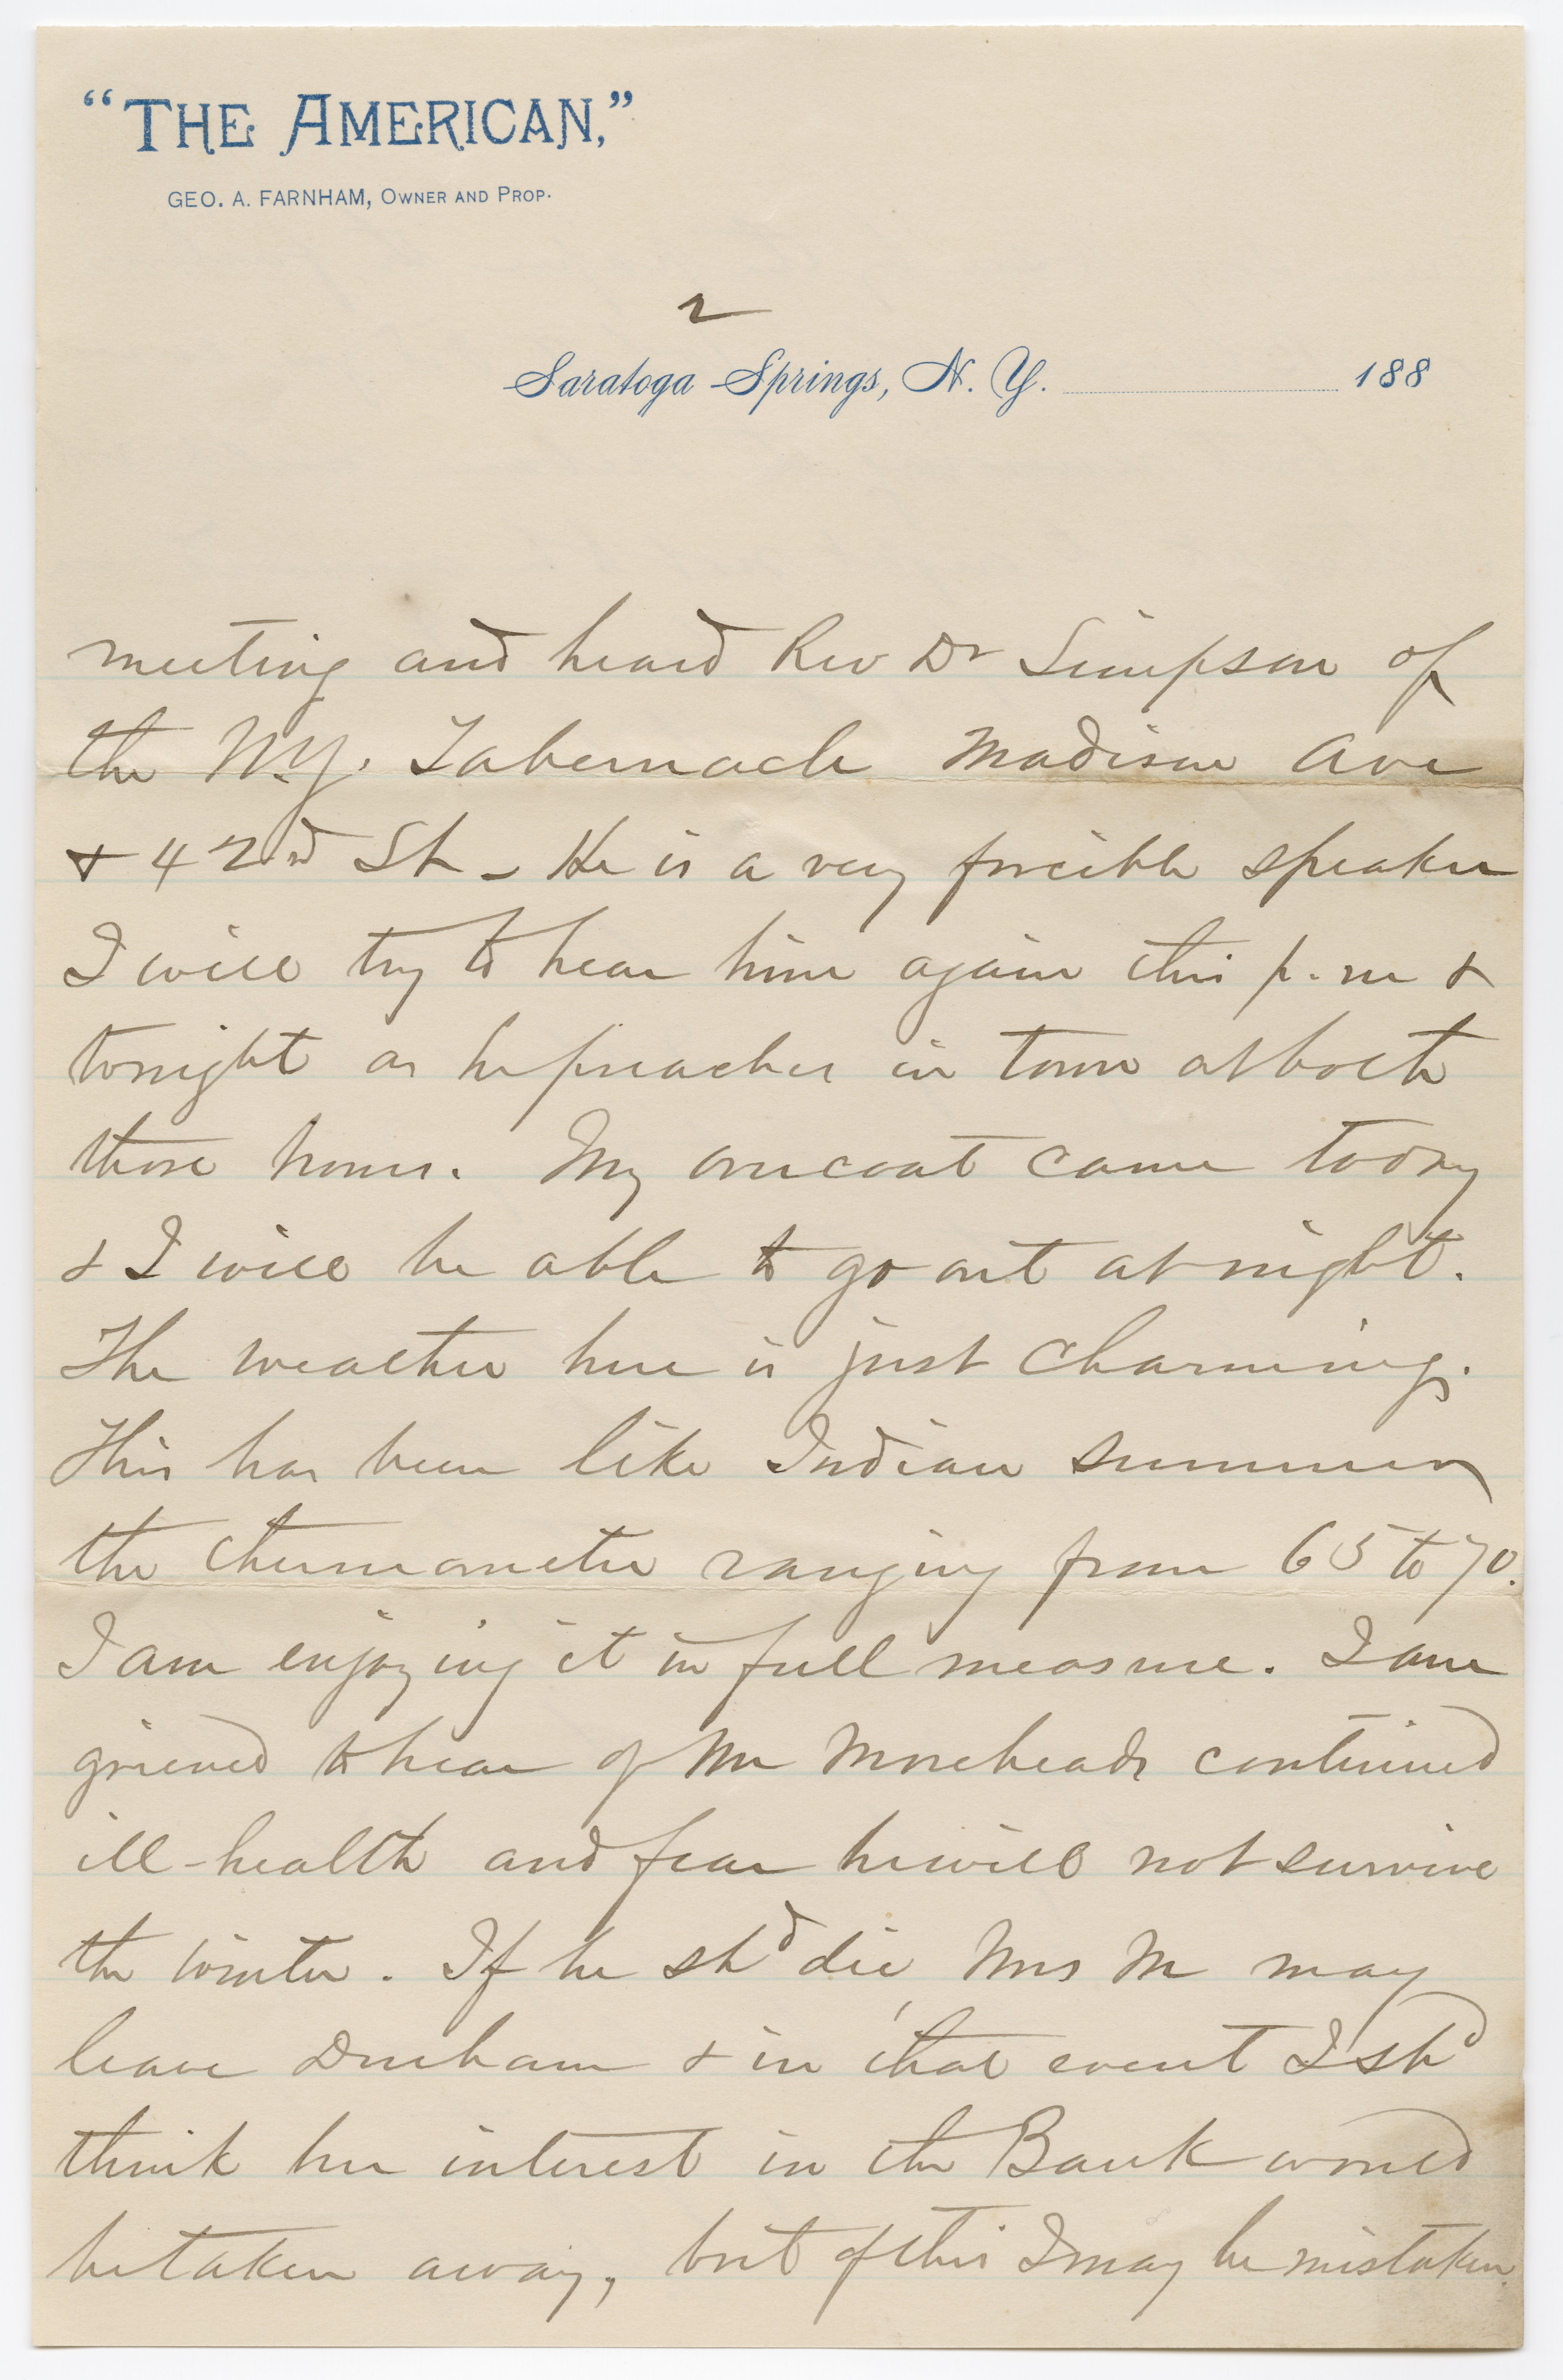 “THE AMERICAN,”
GEO. A. FARNHAM, OWNER AND PROP.
2
Saratoga Springs, N. Y. 188
meeting and heard Rev Dr Simpson of
the N.Y. Tabernacle Madison Ave
+ 42nd St – He is a very forcible speaker
I will try to hear him again this p.m +
tonight as he preaches in town at both
those hours. My overcoat came today
+ I will be able to go out at night.
The weather here is just charming.
This has been like Indian summer
the thermometer ranging from 65 to 70.
I am enjoying it in full measure. I am
grieved to hear of Mr Moreheads continued
ill-health and fear he will not survive
the winter. If he shd die, Mrs M may
leave Durham + in that event I shd
think her interest in the Bank would
be taken away, but of this I may be mistaken.